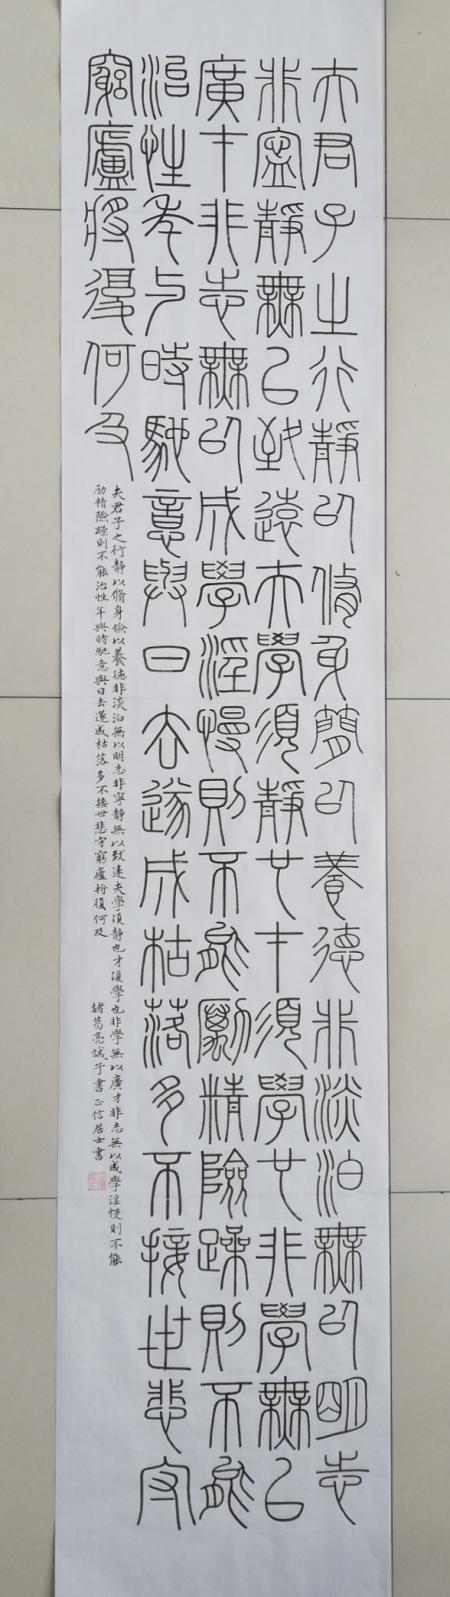 夫君子之行靜以脩身儉以養德非淡泊無以明志
非寧靜無以致遠夫學須靜也才須學也非學無以
廣才非志無以成學淫慢則不能勵精險躁則不能
治性年与時馳意與日去遂成枯落多不接世悲守
窮廬將復何及
夫君子之行静以脩身儉以養德非淡泊無以明志非寧静無以致遠夫學須静也才須學也非學無以廣才非志無以成學淫慢則不能
励精險躁則不能治性年與時馳意與日去遂成枯落多不接世悲守窮廬将復何及
諸葛亮誡子書正信居士書